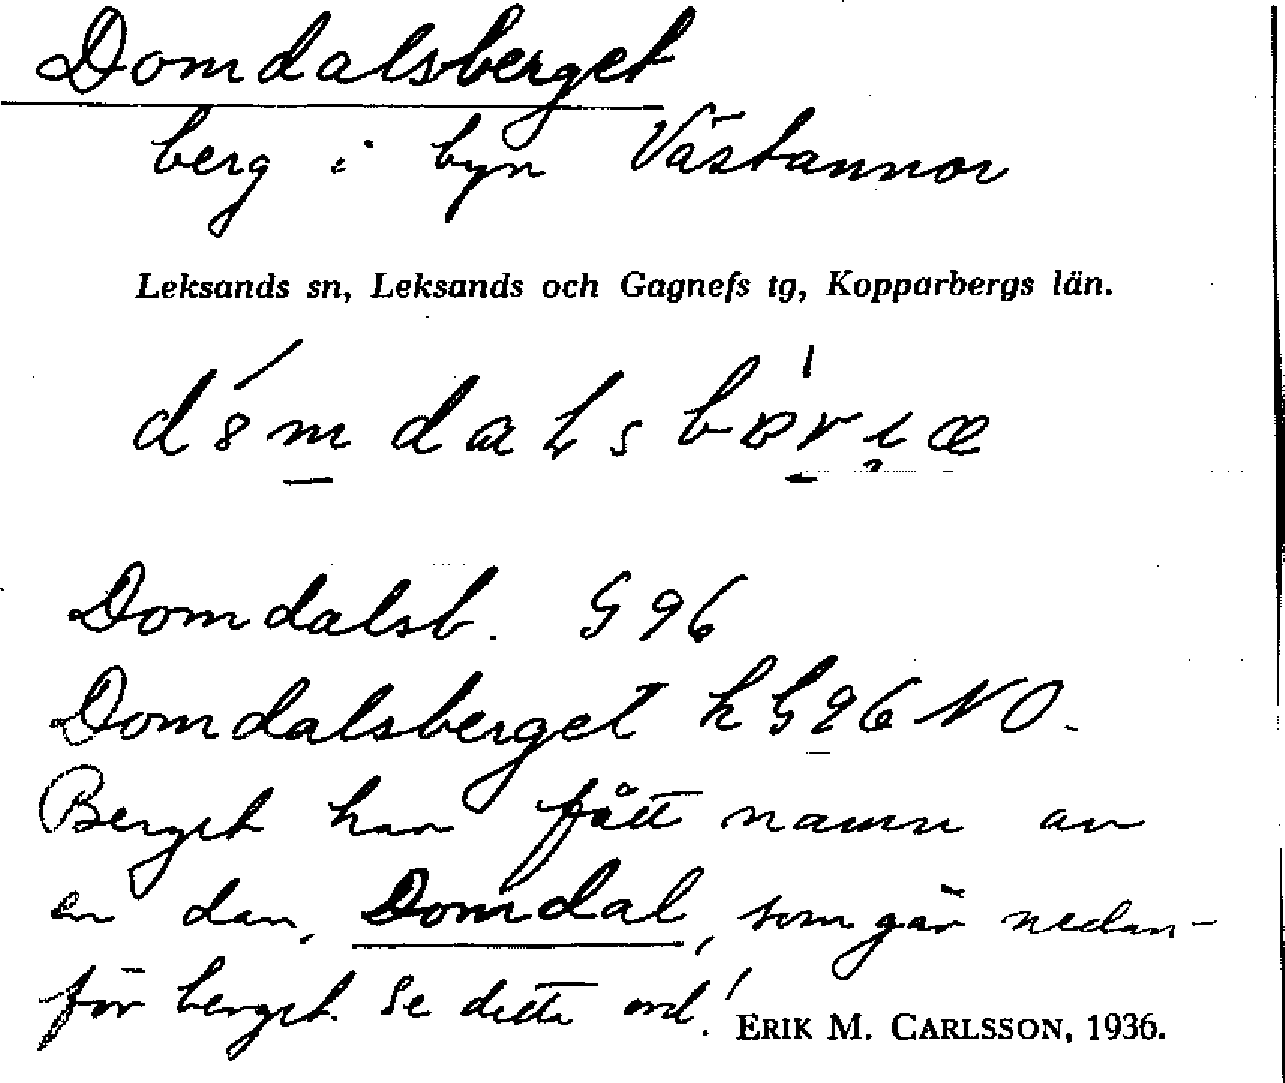 Domdalsberget
berg i byn Västannor
Leksands sn, Leksands och Gagnefs tg, Kopparbergs län.
Domdalsb. G 96
Domdalsberget h G 96 NO.
Berget har fått namn av
en dan, Domdal, som går nedan-
för berget. Se detta ord!
ERIK M. CARLSSON, 1936.